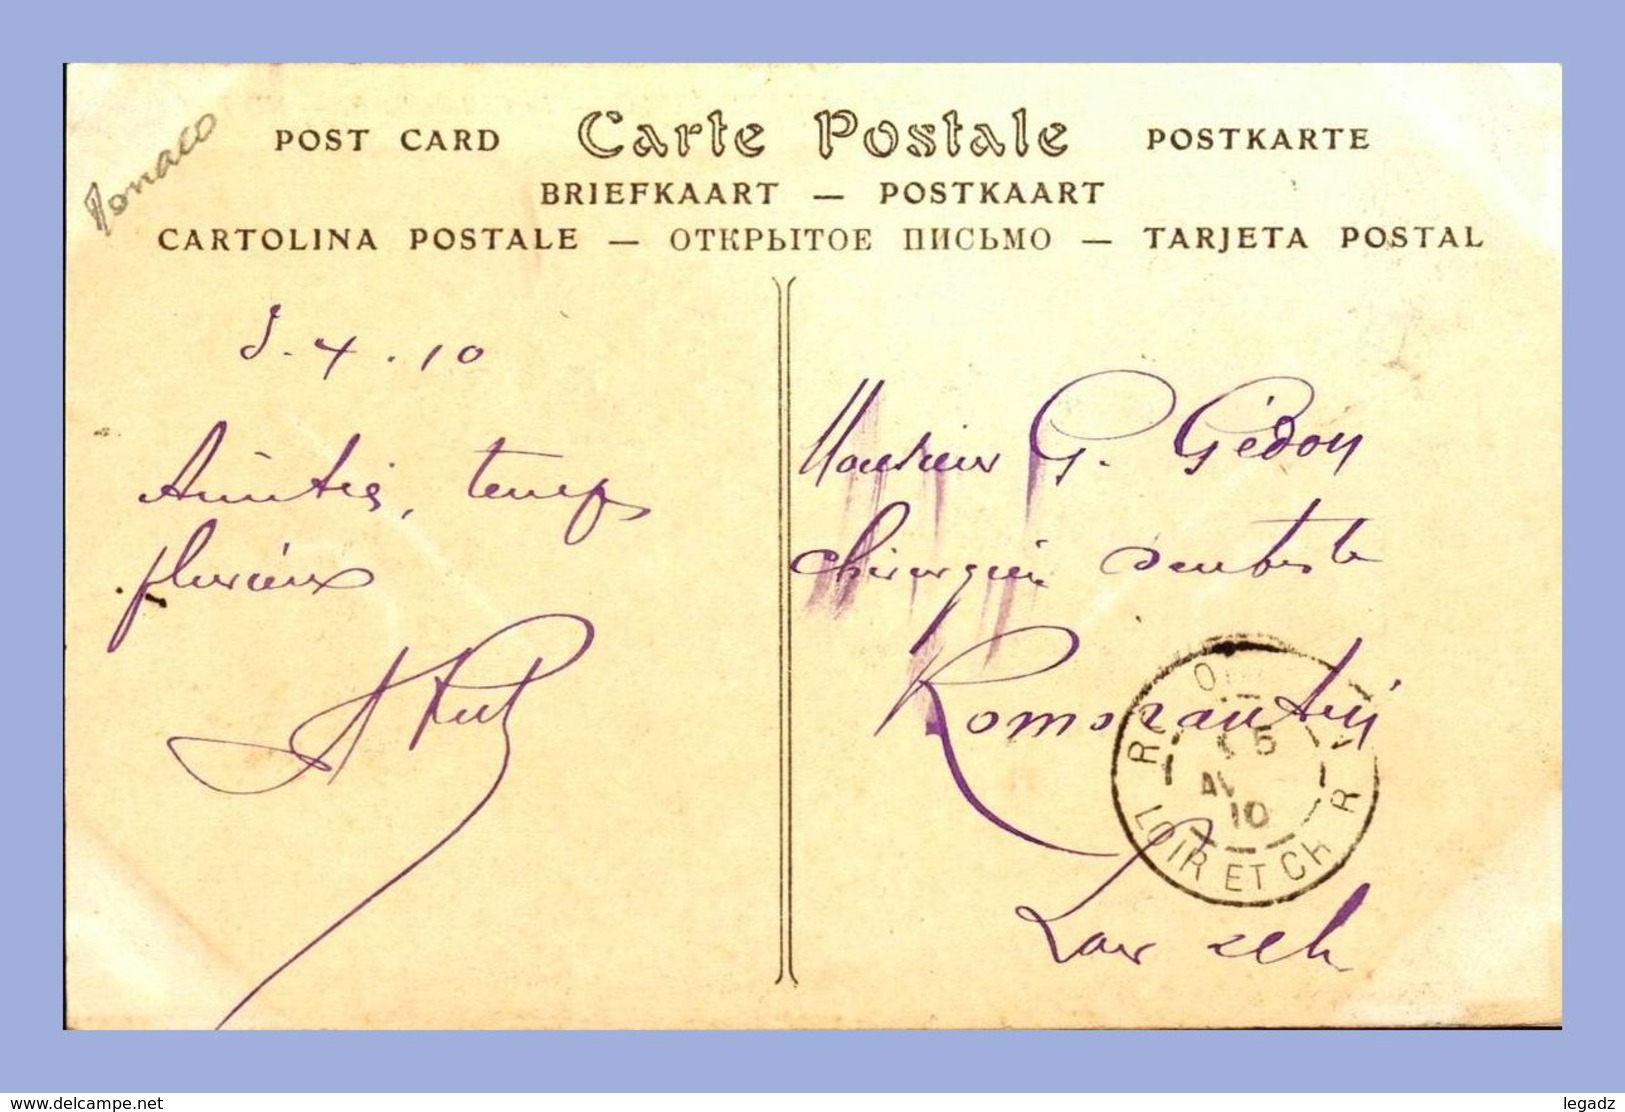 Monaco
POST CARD Carte Postale POSTKARTE
BRIEFKAART — POSTKAART
CARTOLINA POSTALE — ОТКРЫТОЕ ПИСЬМО — TARJETA POSTAL
3.4.10
Amitiés, temps
pluvieux
Monsieur G. Gédon
chirurgien dentiste
Romorantin
Loir et Ch
5
AV
10
LOIR ET CHR
www.delcampe.net
legadz